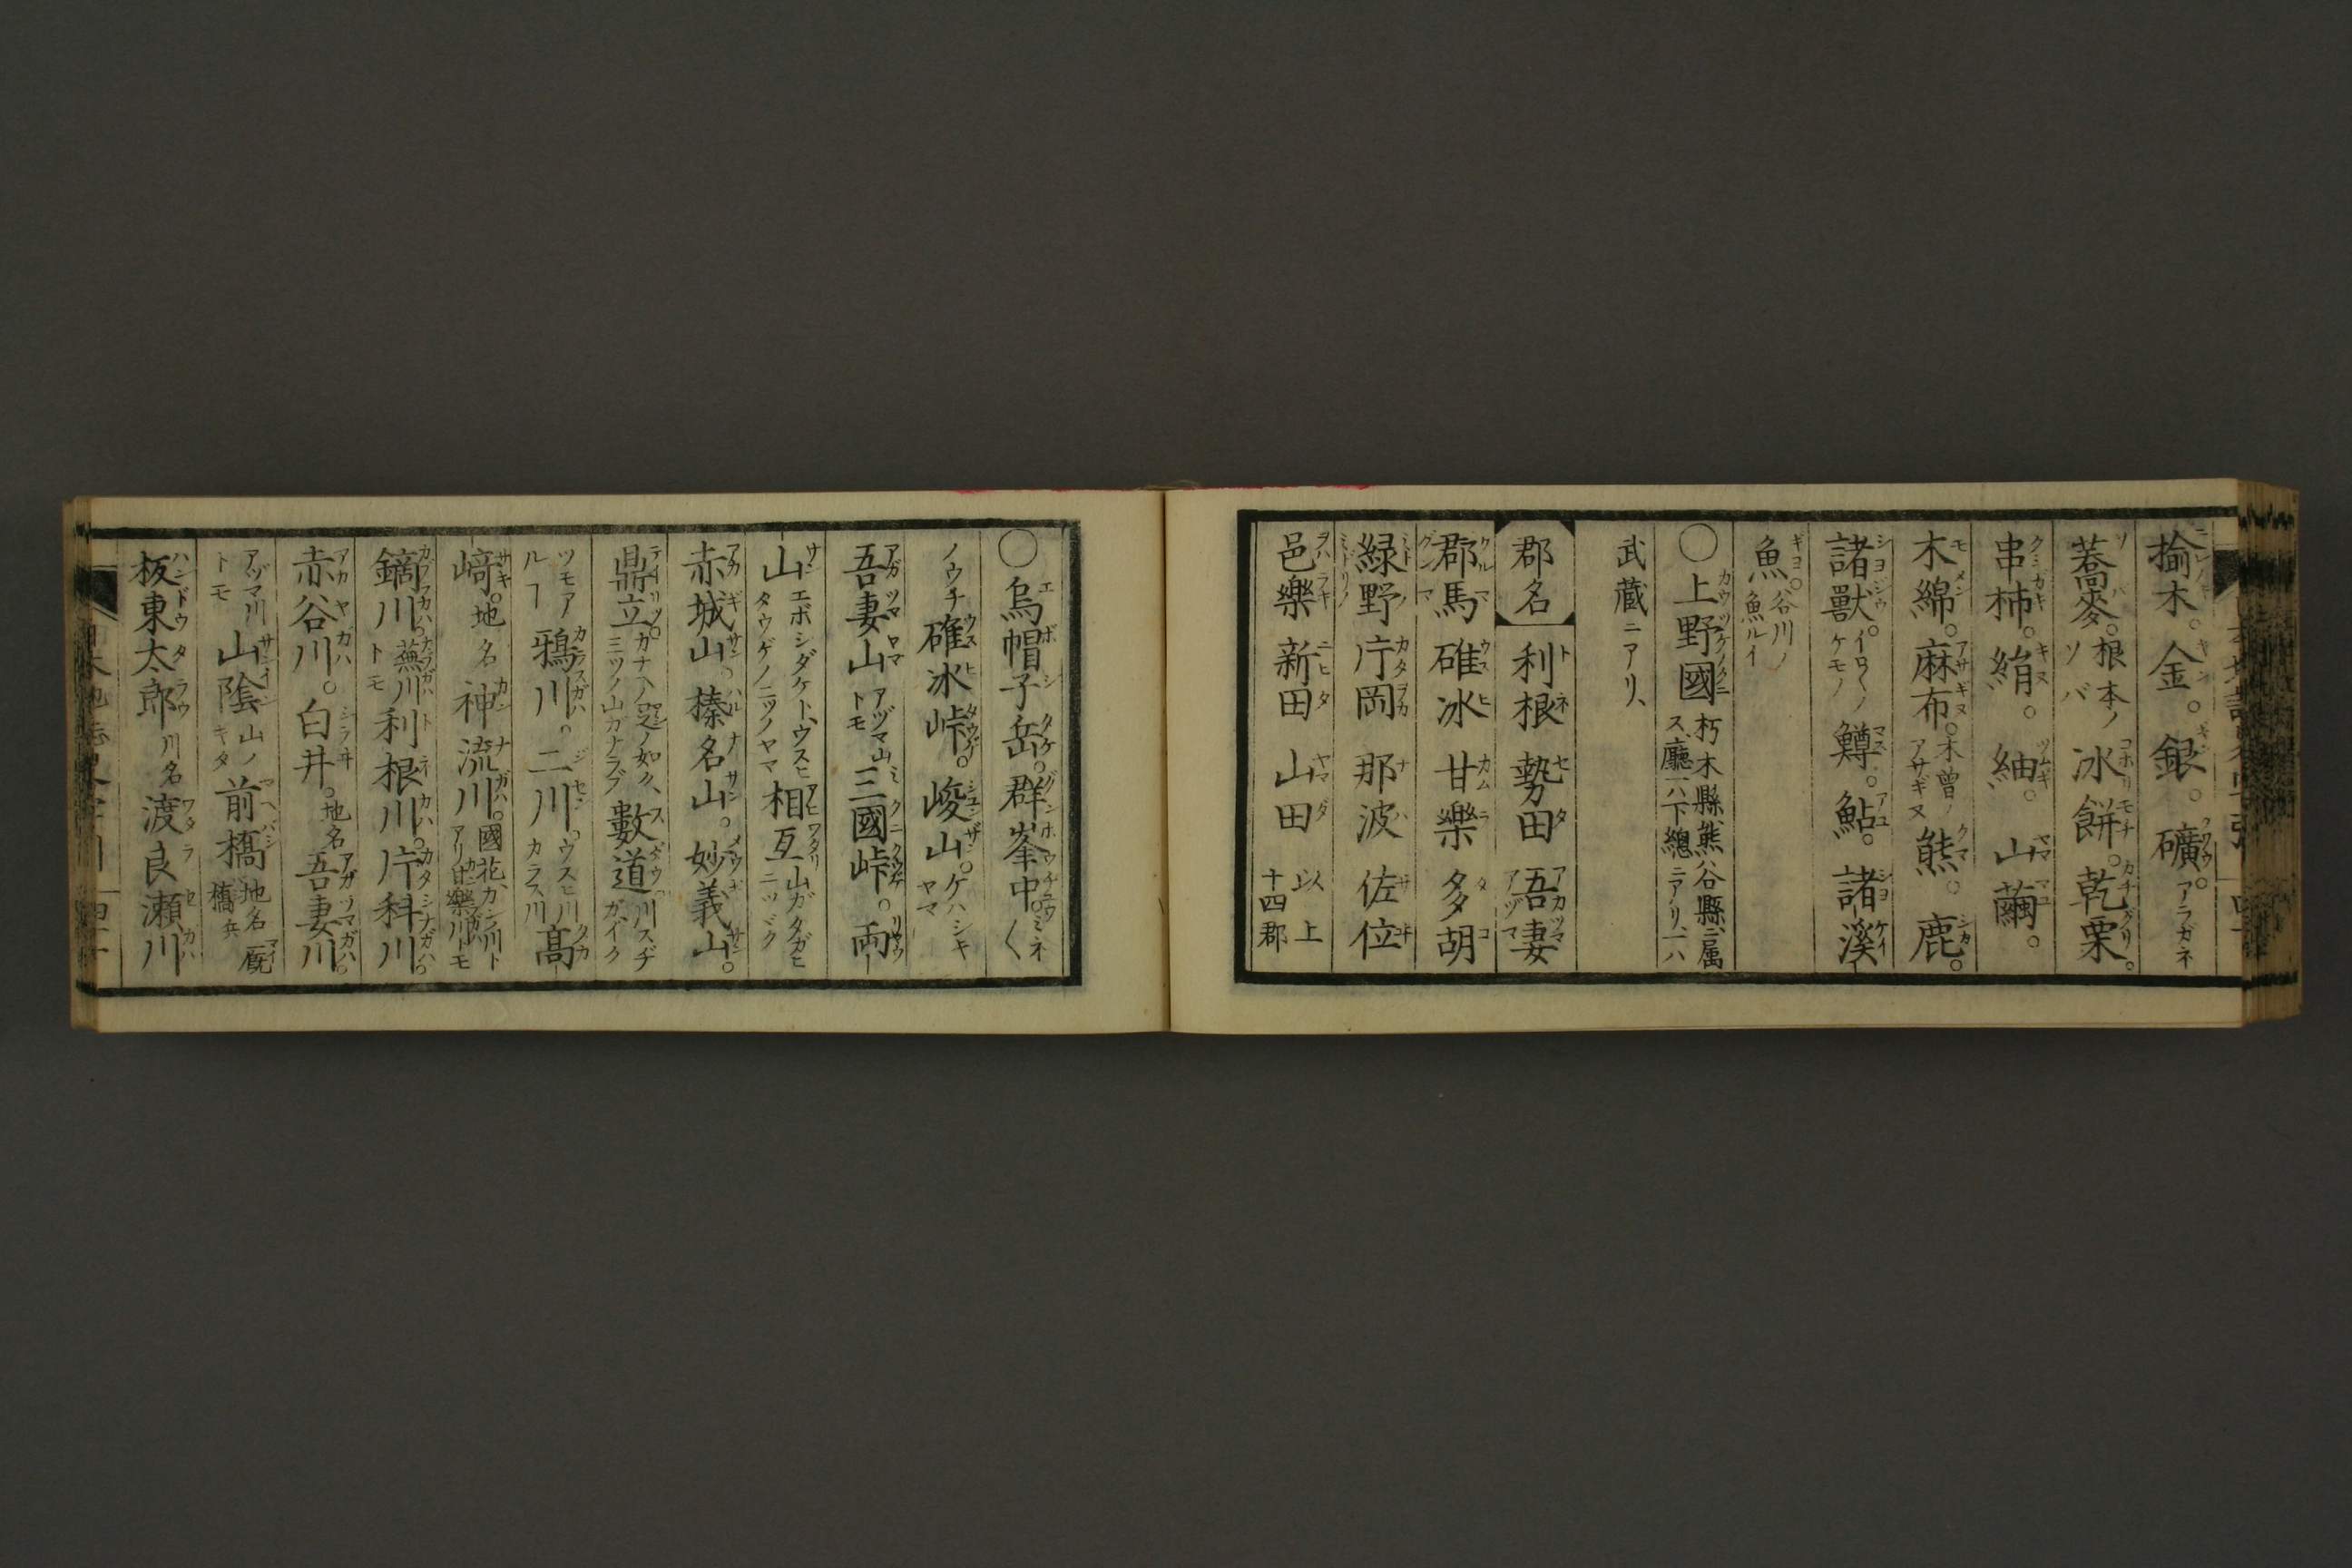 楡木。金。銀。礦。アラガネ
蕎麥。根本ノソバ 氷餅。乾栗。
串柿。絹。紬。山繭。
木綿。麻布。木曽ノアサギヌ 熊。鹿。
諸獸。イロ〳〵ノケモノ 鱒。鮎。諸溪
魚。谷川ノ魚ルイ
〇上野國 朽木縣熊谷縣ニ属ス、廳一ハ下總ニアリ、一ハ
武藏ニアリ、
郡名 利根 勢田 吾妻
郡馬 碓氷 甘樂 多胡
緑野 片岡 那波 佐位
邑樂 新田 山田 以上十四郡
〇烏帽子岳。群峯中。ミネ〳〵
ノウチ 碓氷峠。峻山。ケハシキヤマ
吾妻山 アヅマ山トモ 三國峠。両
山 エボシダケト、ウスヒタウゲノニツノヤマ 相互 山ガタガヒニツヾク
赤城山。榛名山。妙義山。
鼎立。カナヘノ足ノ如ク、三ツノ山ガナラブ 數道 川スヂガイク
ツモアルヿ 鴉川。二川。ウスヒ川カラス川 高
﨑。地名 神流川。國花、カンナ川トアリ甘樂川トモ
鏑川。蕪川トモ 利根川。片科川。
赤谷川。白井。地名 吾妻川。
アヅマ川トモ 山陰 山ノキタ 前橋 地名 厩橋共
板東太郎 川名 渡良瀬川